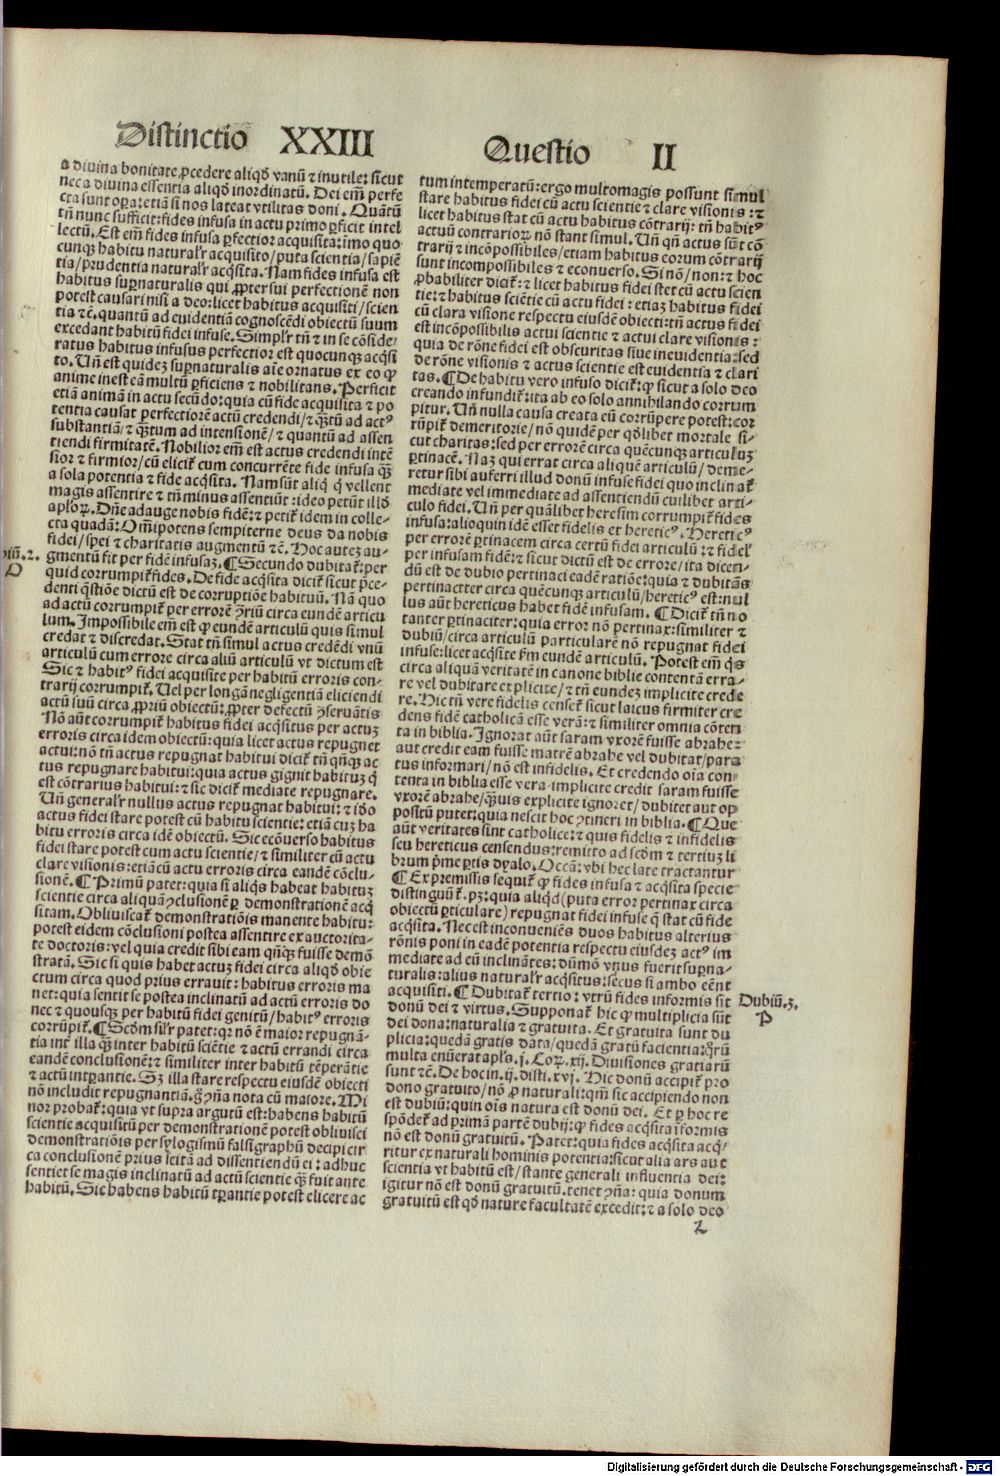 Distinctio XXIII
Questio II
a divina bonitate ꝓcedere aliqd̄ vanū ⁊ inutile: sicut
nec a divina essentia aliqd̄ inordinatū. Dei eīm perfe
cta sunt oꝑa: etiā si nos lateat vtilitas doni. Quātū
tn̄ nunc sufficit: fides infusa in actu primo ꝑficit intel
lectū. Est eīm fides infusa ꝑfectior acquisita: īmo quo
cunqꝫ habitu natural'r acquisito/puta scientia/sapiē
tia/prudentia natural'r acq̄sita. Nam fides infusa est
habitus suꝑnaturalis qui ꝓpter sui perfectionē non
potest causari nisi a deo: licet habitus acquisiti/scien
tia ⁊c̄. quantū ad euidentiā cognoscēdi obiectū suum
excedant habitū fidei infuse. Simpl'r tn̄ ⁊ in se cōside/
ratus habitus infusus perfectior est quocunqꝫ acq̄si
to. Un̄ est quidez suꝑnaturalis aīe ornatus ex eo ꝙ
anime inest eā multū ꝑficiens ⁊ nobilitans. Perficit
etiā animā in actu secūdo: quia cū fide acquisita ⁊ po
tentia causat perfectiorē actū credendi/⁊ q̄ꝫtū ad actꝰ
substantiā/⁊ q̄ꝫtum ad intensionē/⁊ quantū ad assen
tiendi firmitatē. Nobilior eīm est actus credendi intē
sior ⁊ firmior/cū elicit᷑ cum concurrēte fide infusa qꝫ̄
a sola potentia ⁊ fide acq̄sita. Nam sūt aliq̄ q̄ vellent
magis assentire ⁊ tn̄ minus assentiūt: ideo petūt illd̄
aplōꝝ. Dn̄e adauge nobis fidē: ⁊ petit᷑ idem in colle-
cta quadā: Om̄ipotens sempiterne deus da nobis
fidei/spei ⁊ charitatis augmentū ⁊c̄. Hoc autez au-
gmentū fit per fidē infusaꝫ. ¶ Secundo dubitat᷑: per
quid corrumpit᷑ fides. De fide acq̄sita dicit᷑ sicut p̄ce-
denti q̄stiōe dictū est de corruptiōe habituū. Nā quo
ad actū corrumpit᷑ per errorē ꝯ̄riū circa eundē articu
lum. Impossibile eīm est ꝙ eundē articulū quis simul
credat ⁊ discredat. Stat tn̄ simul actus credēdi vnū
articulū cum errore circa aliū articulū vt dictum est
Sic ⁊ habitꝰ fidei acquisite per habitū erroris con-
trarij corrumpit᷑. Uel per longā negligentiā eliciendi
actū suū circa ꝓpriū obiectū: ꝓpter defectū ꝯseruātis
Nō aūt corrumpit᷑ habitus fidei acq̄situs per actuꝫ
erroris circa idem obiectū: quia licet actus repugnet
actui: nō tn̄ actus repugnat habitui dicit᷑ tn̄ qn̄qꝫ ac
tus repugnare habitui: quia actus gignit habituꝫ q̄
est cōtrarius habitui: ⁊ sic dicit᷑ mediate repugnare.
Un̄ general'r nullus actus repugnat habitui: ⁊ iō
actus fidei stare potest cū habitu scientie: etiā cuꝫ ha
bitu erroris circa idē obiectū. Sic ecōuerso habitus
fidei stare potest cum actu scientie/⁊ similiter cū actu
clare visionis: etiā cū actu erroris circa eandē cōclu/
sionē. ¶ Primū patet: quia si aliq̄s habeat habituꝫ
scientie circa aliquā ꝯclusionē ꝑ demonstrationē acq̄
sitam. Obliuiscat᷑ demonstratiōis manente habitu:
potest eidem cōclusioni postea assentire ex auctorita-
te doctoris: vel quia credit sibi eam qn̄qꝫ fuisse demō
stratā. Sic si quis habet actuꝫ fidei circa aliqd̄ obie
ctum circa quod prius errauit: habitus erroris ma
net: quia sentit se postea inclinatū ad actū erroris do
nec ⁊ quousqꝫ per habitū fidei genitū/habitꝰ erroris
corrūpit᷑. ¶ Scd̄m sil'r patet: qꝛ nō ē maior repugnā-
tia int̄ illa qꝫ̄ inter habitū sciētie ⁊ actū errandi circa
eandē conclusionē: ⁊ similiter inter habitū tēperātie
⁊ actū intꝑantie. Sꝫ illa stare respectu eiusdē obiecti
nō includit repugnantiā. gͦ ꝯn̄a nota cū maiore. Mi
nor probat᷑: quia vt supra argutū est: habens habitū
scientie acquisitū per demonstrationē potest obliuisci
demonstratiōis per sylogismū falsigraphū decipi cir
ca conclusionē prius scitā ad dissentiendū ei: adhuc
sentiet se magis inclinatū ad actū scientie qꝫ̄ fuit ante
habitū. Sic habens habitū tꝑantie potest elicere ac
biū. 2.
O
tum intemperatū: ergo multomagis possunt simul
stare habitus fidei cū actu scientie ⁊ clare visionis: ⁊
licet habitus stat cū actu habitus cōtrarij: tn̄ habitꝰ
actuū contrarioꝝ nō stant simul. Un̄ qn̄ actus sūt cō
trarij ⁊ incōpossibiles/etiam habitus eorum cōtrarij
sunt incompossibiles ⁊ econuerso. Si nō/non: ⁊ hoc
ꝓbabiliter dicit᷑: ⁊ licet habitus fidei stet cū actu scien
tie: ⁊ habitus sciētie cū actu fidei: etiaꝫ habitus fidei
cū clara visione respectu eiusdē obiecti: tn̄ actus fidei
est incōpossibilis actui scientie ⁊ actui clare visionis:
quia de rōne fidei est obscuritas siue ineuidentia: sed
de rōne visionis ⁊ actus scientie est euidentia ⁊ clari
tas. ¶ De habitu vero infuso dicit᷑: ꝙ sicut a solo deo
creando infundit᷑: ita ab eo solo annihilando corrum
pitur. Un̄ nulla causa creata eū corrūpere potest: cor
rūpit᷑ demeritorie/nō quidē per qd̄libet mortale si-
cut charitas: sed per errorē circa quēcunqꝫ articuluꝫ
ꝑtinacē. Naꝫ qui errat circa aliquē articulū/deme-
retur sibi auferri illud donū infuse fidei quo inclinat᷑
mediate vel immediate ad assentiendū cuilibet arti-
culo fidei. Un̄ per quālibet heresim corrumpit᷑ fides
infusa: alioquin idē esset fidelis et hereticꝰ. Hereticꝰ
per errorē ꝑtinacem circa certū fidei articulū: ⁊ fidel'
per infusam fidē: ⁊ sicut dictū est de errore/ita dicen-
dū est de dubio pertinaci eadē ratiōe: quia ⁊ dubitās
pertinacter circa quēcunqꝫ articulū/hereticꝰ est: nul
lus aūt hereticus habet fidē infusam. ¶ Dicit᷑ tn̄ no
tanter ꝑtinaciter: quia error nō pertinax: similiter ⁊
dubiū/circa articulū particularē nō repugnat fidei
infuse: licet acq̄site fm̄ eundē articulū. Potest eīm q̄s
circa aliquā veritatē in canone biblie contentā erra-
re vel dubitare explicite/⁊ tn̄ eundeꝫ implicite crede
re. Hic tn̄ vere fidelis censet᷑ sicut laicus firmiter cre
dens fidē catholicā esse verā: ⁊ similiter omnia cōten
ta in biblia. Ignorat aūt saram vxorē fuisse abrahe:
aut credit eam fuisse matrē abrahe vel dubitat/para
tus informari/nō est infidelis. Et credendo oīa con
tenta in biblia esse vera implicite credit saram fuisse
vxorē abrahe/qꝫ̄uis explicite ignoret/dubitet aut op
positū putet: quia nescit hoc ꝯtineri in biblia. ¶ Que
aūt veritates sint catholice: ⁊ quis fidelis ⁊ infidelis
seu hereticus censendus: remitto ad scd̄m ⁊ tertiuꝫ li
brum p̄me ꝑtis dyalo. Occā: vbi hec late tractantur
¶ Ex premissis sequit᷑ ꝙ fides infusa ⁊ acq̄sita specie
distinguūt᷑. pꝫ: quia aliqd̄ (puta error pertinax circa
obiectū ꝑticulare) repugnat fidei infuse q̄ stat cū fide
acq̄sita. Nec est inconueniēs duos habitus alterius
rōnis poni in eadē potentia respectu eiusdeꝫ actꝰ im
mediate ad eū inclinātes: dūmō vnus fuerit suꝑna-
turalis: alius natural'r acq̄situs: secus si ambo eēnt
acquisiti. ¶ Dubitat᷑ tertio: vtrū fides informis sit
donū dei ⁊ virtus. Supponat᷑ hic ꝙ multiplicia sūt
dei dona: naturalia ⁊ gratuita. Et gratuita sunt du
plicia: quedā gratis data/quedā gratū facientia: q̄rū
multa enūerat apl̄s. j. Coꝝ. xij. Diuisiones gratiarū
sunt ⁊c̄. De hoc in. ij. disti. xvj. Hic donū accipit᷑ pro
dono gratuito/nō ꝓ naturali: qm̄ sic accipiendo non
est dubiū: quin oīs natura est donū dei. Et ꝑ hoc re
spōdet᷑ ad primā partē dubij: ꝙ fides acq̄sita īformis
nō est donū gratuitū. Patet: quia fides acq̄sita acq̄/
ritur ex naturali hominis potentia: sicut alia ars aut
scientia vt habitū est/stante generali influentia dei:
igitur nō est donū gratuitū. tenet ꝯn̄a: quia donum
gratuitū est qd̄ nature facultatē excedit: ⁊ a solo deo
Dubiū. 3.
P
2
Digitalisierung gefördert durch die Deutsche Forschungsgemeinschaft - DFG